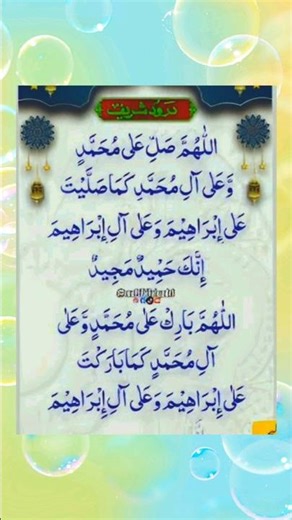 درود شریف
اللّٰهُمَّ صَلِّ عَلٰی مُحَمَّدٍ
وَّعَلٰی آلِ مُحَمَّدٍ کَمَا صَلَّیْتَ
عَلٰی اِبْرَاهِیْمَ وَعَلٰی آلِ اِبْرَاهِیْمَ
اِنَّكَ حَمِیْدٌ مَّجِیْدٌ
اللّٰهُمَّ بَارِكْ عَلٰی مُحَمَّدٍ وَّعَلٰی
آلِ مُحَمَّدٍ کَمَا بَارَکْتَ
عَلٰی اِبْرَاهِیْمَ وَعَلٰی آلِ اِبْرَاهِیْمَ